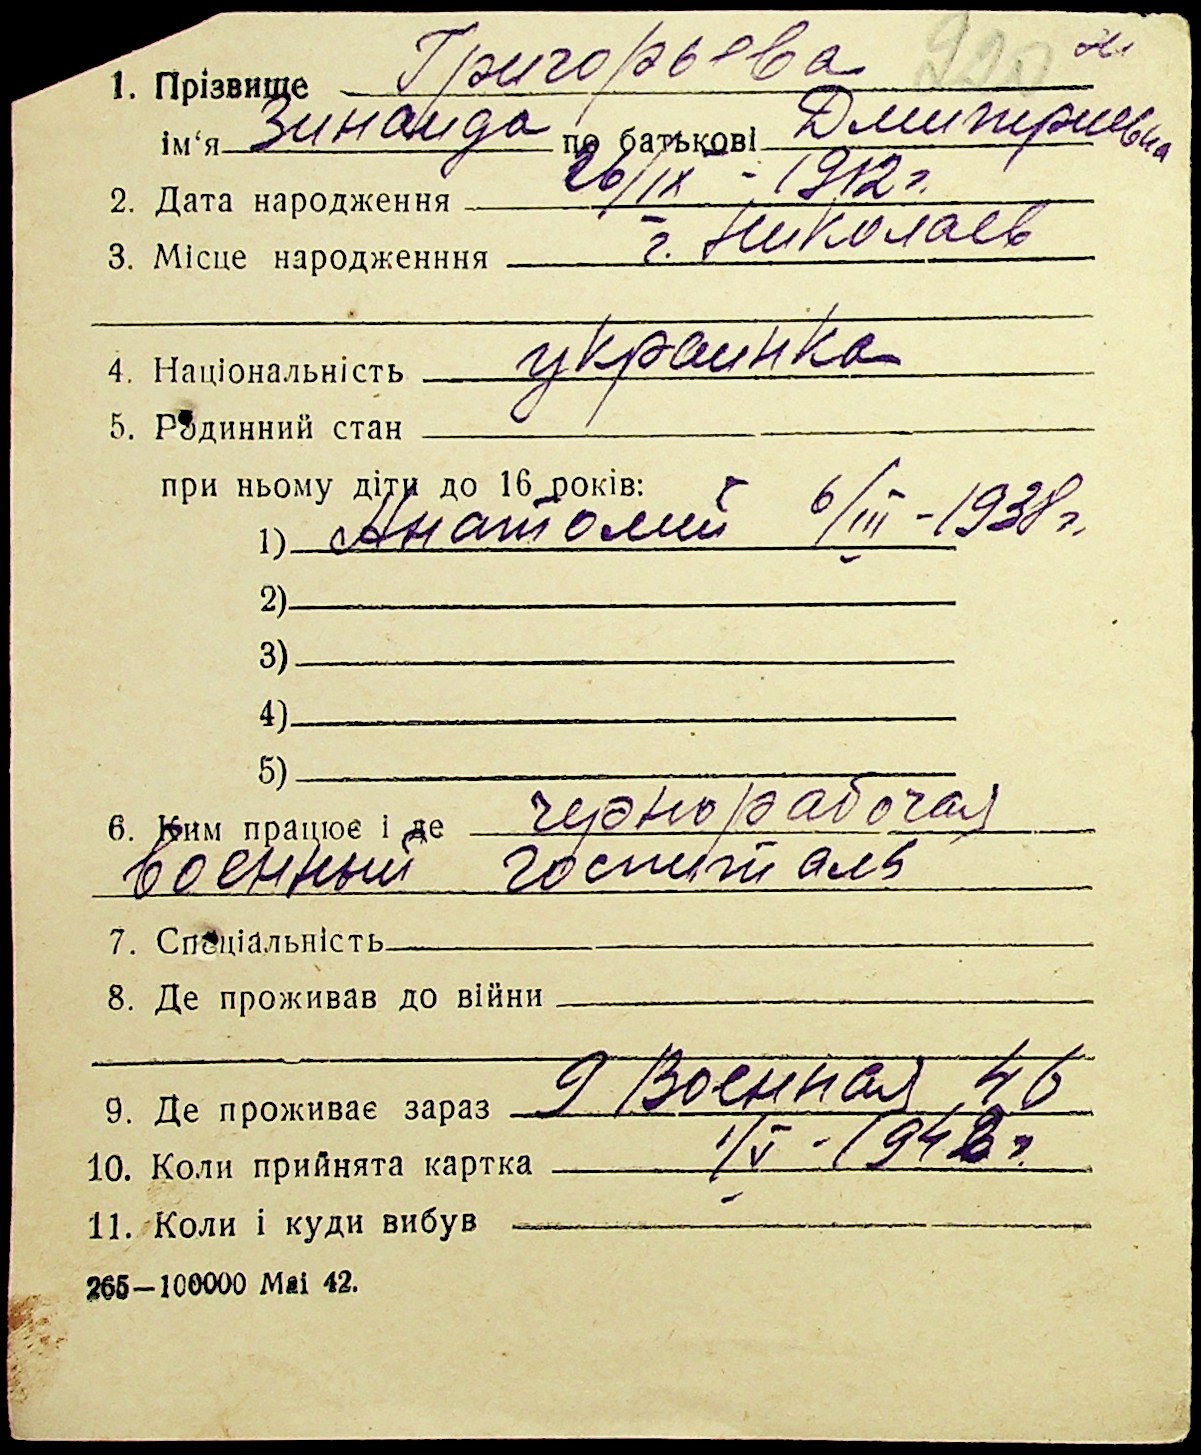 220
1. Прізвище Григорьева
ім‘я Зинаида по батькові Дмитриевна
2. Дата народження 26/IX - 1912 г.
3. Місце народженння г. Николаев
4. Національність украинка
5. Родинний стан
при ньому діти до 16 років:
1) Анатолий 6/III - 1938 г.
2)
3)
4)
5)
6. Ким працює і де чернорабочая
военный госпиталь
7. Спеціальність
8. Де проживав до війни
9. Де проживає зараз 9 Военная 46
10. Коли прийнята картка 1/V - 1943 г.
11. Коли і куди вибув
265—100000 Mai 42.